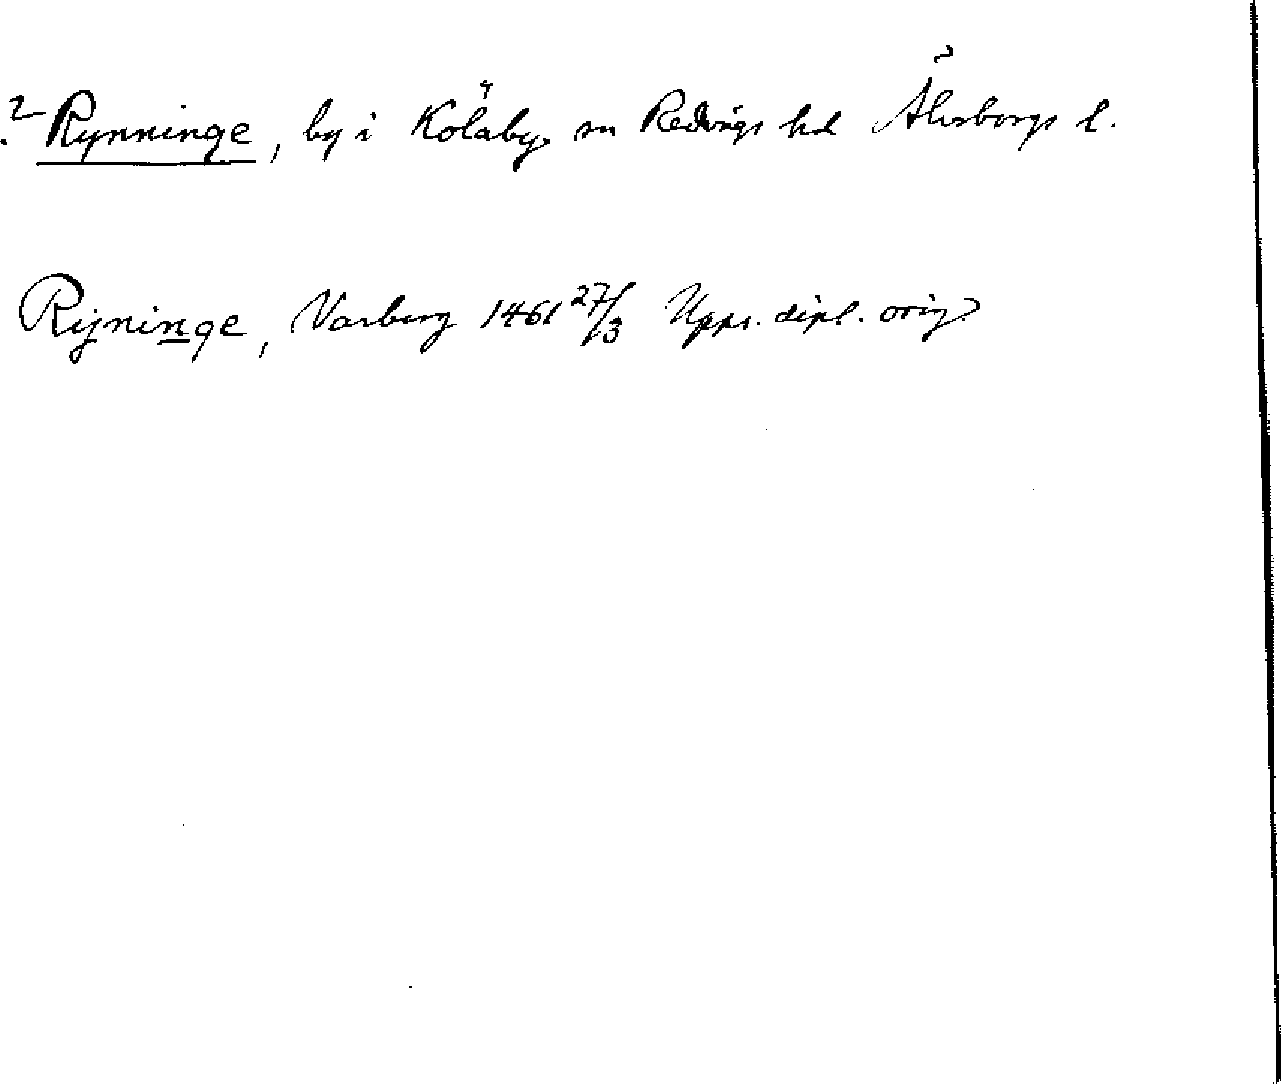 ? Rynninge, by i Kölaby sn Redvägs hd Älvsborgs l.
Rijninge, Varberg 1461 27/3 Upps. dipl. orig.